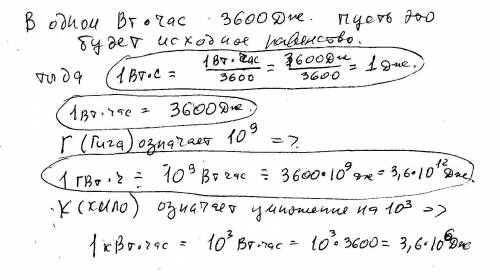 В одном Вт•час 3600 Дж. пусть это
будет исходное равенство.
тогда 1Вт•с = 1Вт•час/3600 = 3600Дж/3600 = 1 Дж.
1Вт•час = 3600 Дж.
Г (Гига) означает 10⁹ =>
1 ГВт•ч = 10⁹ Вт час = 3600•10⁹ дж = 3,6•10¹² Дж.
К (кило) означает умножение на 10³ =>
1 кВт•час = 10³ Вт•час = 10³•3600 = 3,6•10⁶ Дж